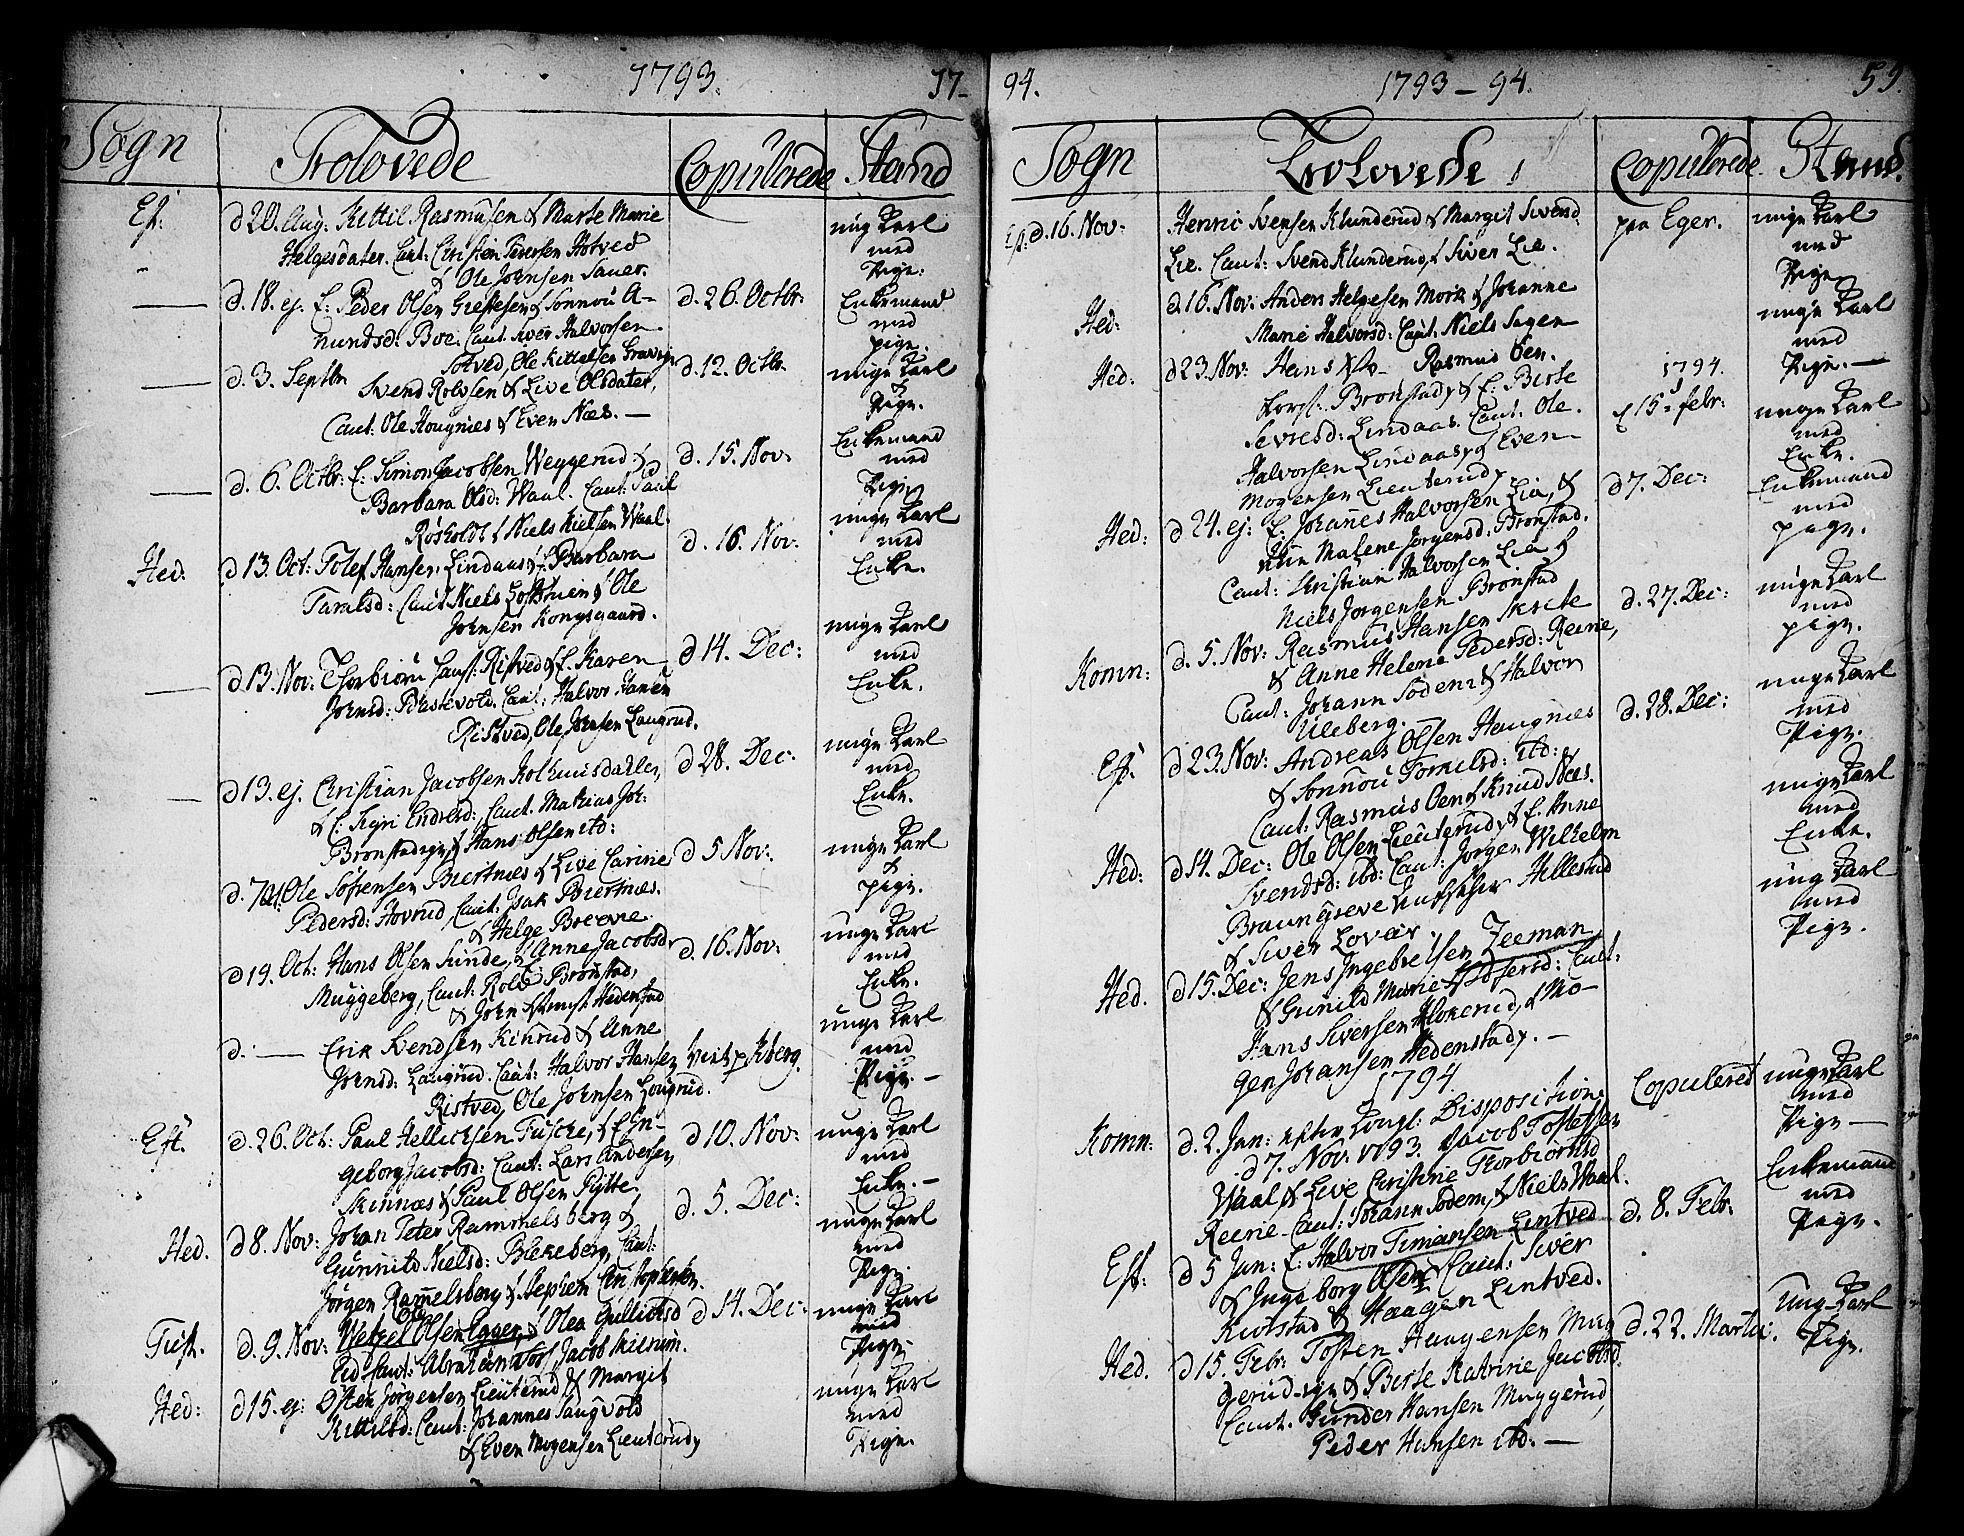 1793.
17-
Sogn
Trolovede
Copulerede
Stand
Ef:
d 20. Aug. Kittil Rasmusen & Marte Marie
Helgesdater. Caut: Christen Pedersen Hotved
& Ole Johnsen Sauer.
ung Karl
med
Pige.
d. 18. ej. E: Peder Olsen & Sonnou A-
mundsd: Boe. Caut. Iver Halvorsen
Hotved, Ole Kittelsen
d. 26. Octbr:
Enkemand
med
pige.
d. 3. Septbr
Svend Rolvsen & Live Olsdater,
Caut: Ole Hougnæs & Even Næs. —
d. 12. Octbr.
unge Karl
&
Pige.
d. 6. Octbr: E: Simon Jacobsen Weggerud &
Barbara Olsd: Waal. Caut: Paul
Røsholdt & Niels Nielsen Waal.
d. 15. Nov.
Enkemand
med
Pige
Hed.
d 13. Oct: Tolef Hansen Lindaas & E: Barbara
Taralsd: Caut Niels & Ole
Johnsen Kongsgaard.
d. 16. Nov:
unge Karl
med
Enke.
d 13. Nov: Thorbiørn Ristved & E. Karen
Johnsd: Caut: Halvor Hansen
Ristved, Ole Johnsen Laugrud.
d 14. Dec:
unge Karl
med
Enke.
d 13. ej. Christian Jacobsen
& E: Siri Endresd: Caut. Mathias Joh:
Brønstadeje & Hans Olsen ibd:
d 28. Dec.
unge Karl
med
Enke.
d. Ole Sørensen Biertnæs & Live Carine
Pedersd: Hovrud, Caut: Isak Biertnæs.
& Helge Breevne
d 5 Nov:
unge Karl
&
pige.
d 19. Oct: Hans Olsen Sunde, & Anne Jacobsd.
Muggeberg, Caut: Role Brønstad,
& John Hedenstad
d. 16. Nov:
unge Karl
med
Enke.
d. — Erik Svendsen Kinrud & Anne
Johnsd: Laugrud. Caut: Halvor Hansen
Ristved, Ole Johnsen Lougrud.
viet p Kberg.
unge Karl
med
Pige. —
Eft.
d. 26. Oct: Paul Hellichsen Fuske, & E: In-
geborg Jacobsd: Caut: Lars Andersen
Skinnæs & Paul Olsen Pytte.
d 10. Nov:
unge Karl
med
Enke. —
Hed.
d 8. Nov: Johan Peter Rammelsberg &
Gunnild Nielsd: Blekeberg, Caut:
Jørgen Ramelsberg & Stephen Christophersen.
d. 5. Dec:
unge Karl
med
Pige.
d. 9. Nov: Wetzel Olsen Egger, & Olea Gulliksd
Caut: Abraham Jacob Skierum.
d 14. Dec:
unge Karl
med
Pige.
Hed:
d 15. ej: Østen Jørgensen Lieuterud & Margit
Kittilsd: Caut: Johannes Saugvold
& Even Mogensen Lieuterud,
unge Karl
med
Pige.
94.
1793 - 94.
59.
Sogn
Trolovede
Copulerede.
Stand.
Ef: d. 16. Nov:
Henric Svensen Klunderud & Margit Svend
Lie. Caut: Svend Klunderud, & Siver Lie.
paa Eger.
unge Karl
med
Pige
Hed:
d 16. Nov: Anders Helgesen Mork & Johanne
Marie Halvorsd: Caut. Niels Sagen
unge Karl
med
Pige. —
Hed.
d 23. Nov: Hans Rasmus Oen.
Brønstad, & E: Birte
Seversd: Lindaas. Caut: Ole
Halvorsen Lindaas & Even
Mogensen Lieuterud,
1794.
15 febr:
unge Karl
med
Enke.
Hed:
d 24. ej: E: Johannes Halvorsen Lie, &
Malene Jørgensd: Brønstad.
Caut: Christian Halvorsen Lie &
Niels Jorgensen Brønstad
d 7. Dec:
Enkemand
med
pige.
Komn:
d. 5. Nov: Rasmus Hansen
& Anne Helene Pedersd: Reine,
Caut: Johann Sodem & Halvor
Ulleberg.
d. 27. Dec:
unge Karl
med
pige.
Ef:
d 23. Nov: Andreas Olsen Haugnæs
& Sonnou Tomelsd: ibd:
Caut. Rasmus Oen & Knud Næs.
d. 28. Dec:
unge Karl
med
Pige.
Hed:
d 14. Dec: Ole Olsen Lieuterud, & E. Anne
Svendsd: ibd: Caut: Jørgen Wilhelm
Braun Hellestad
& Siver Lovaer.
unge Karl
med
Enke.
Hed.
d 15. Dec: Jens Ingebretsen Zeeman
& Gunild Marie Caut:
Hans Siversen Klokerud, & Mo-
gen Johansen Hedenstad. —
ung Karl
med
Pige.
1794.
Copuleret
Komn:
d. 2. Jan: efter Kongl: Disposition
d 7. Nov. 1793. Jacob Tostensen
Waal & Live Christine Thorbiørnsd
Reine. Caut: Johann Sodem, & Niels Waal.
unge Karl
med
Pige —
Eft:
d 5 Jan: E: Halvor Timansen Lintved
& Ingeborg Olsen Caut: Siver
& Haagen Lintved.
d. 8. Febr.
Enkemand
med
Pige.
Hed.
d 15. Febr: Tosten Haagensen Mug
gerud & Birte Katrine Jacobsd.
Caut. Gunder Hansen Muggerud,
Peder Hansen ibd: —
d. 22. Martii.
Ung Karl
Pige.